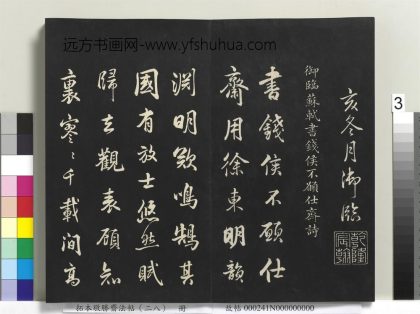 远方书画网-www.yfshuhua.com
亥冬月御臨
乾隆宸翰
御臨蘇軾書錢侯不願仕齋詩
書錢侯不願仕
齋用徐東明韻
淵明鳴鵠其
國有放士悠然賦
歸去觀表知
裏寥〻千載間高
3
拓本敬勝齋法帖（二八） 冊
故帖 000241N000000000